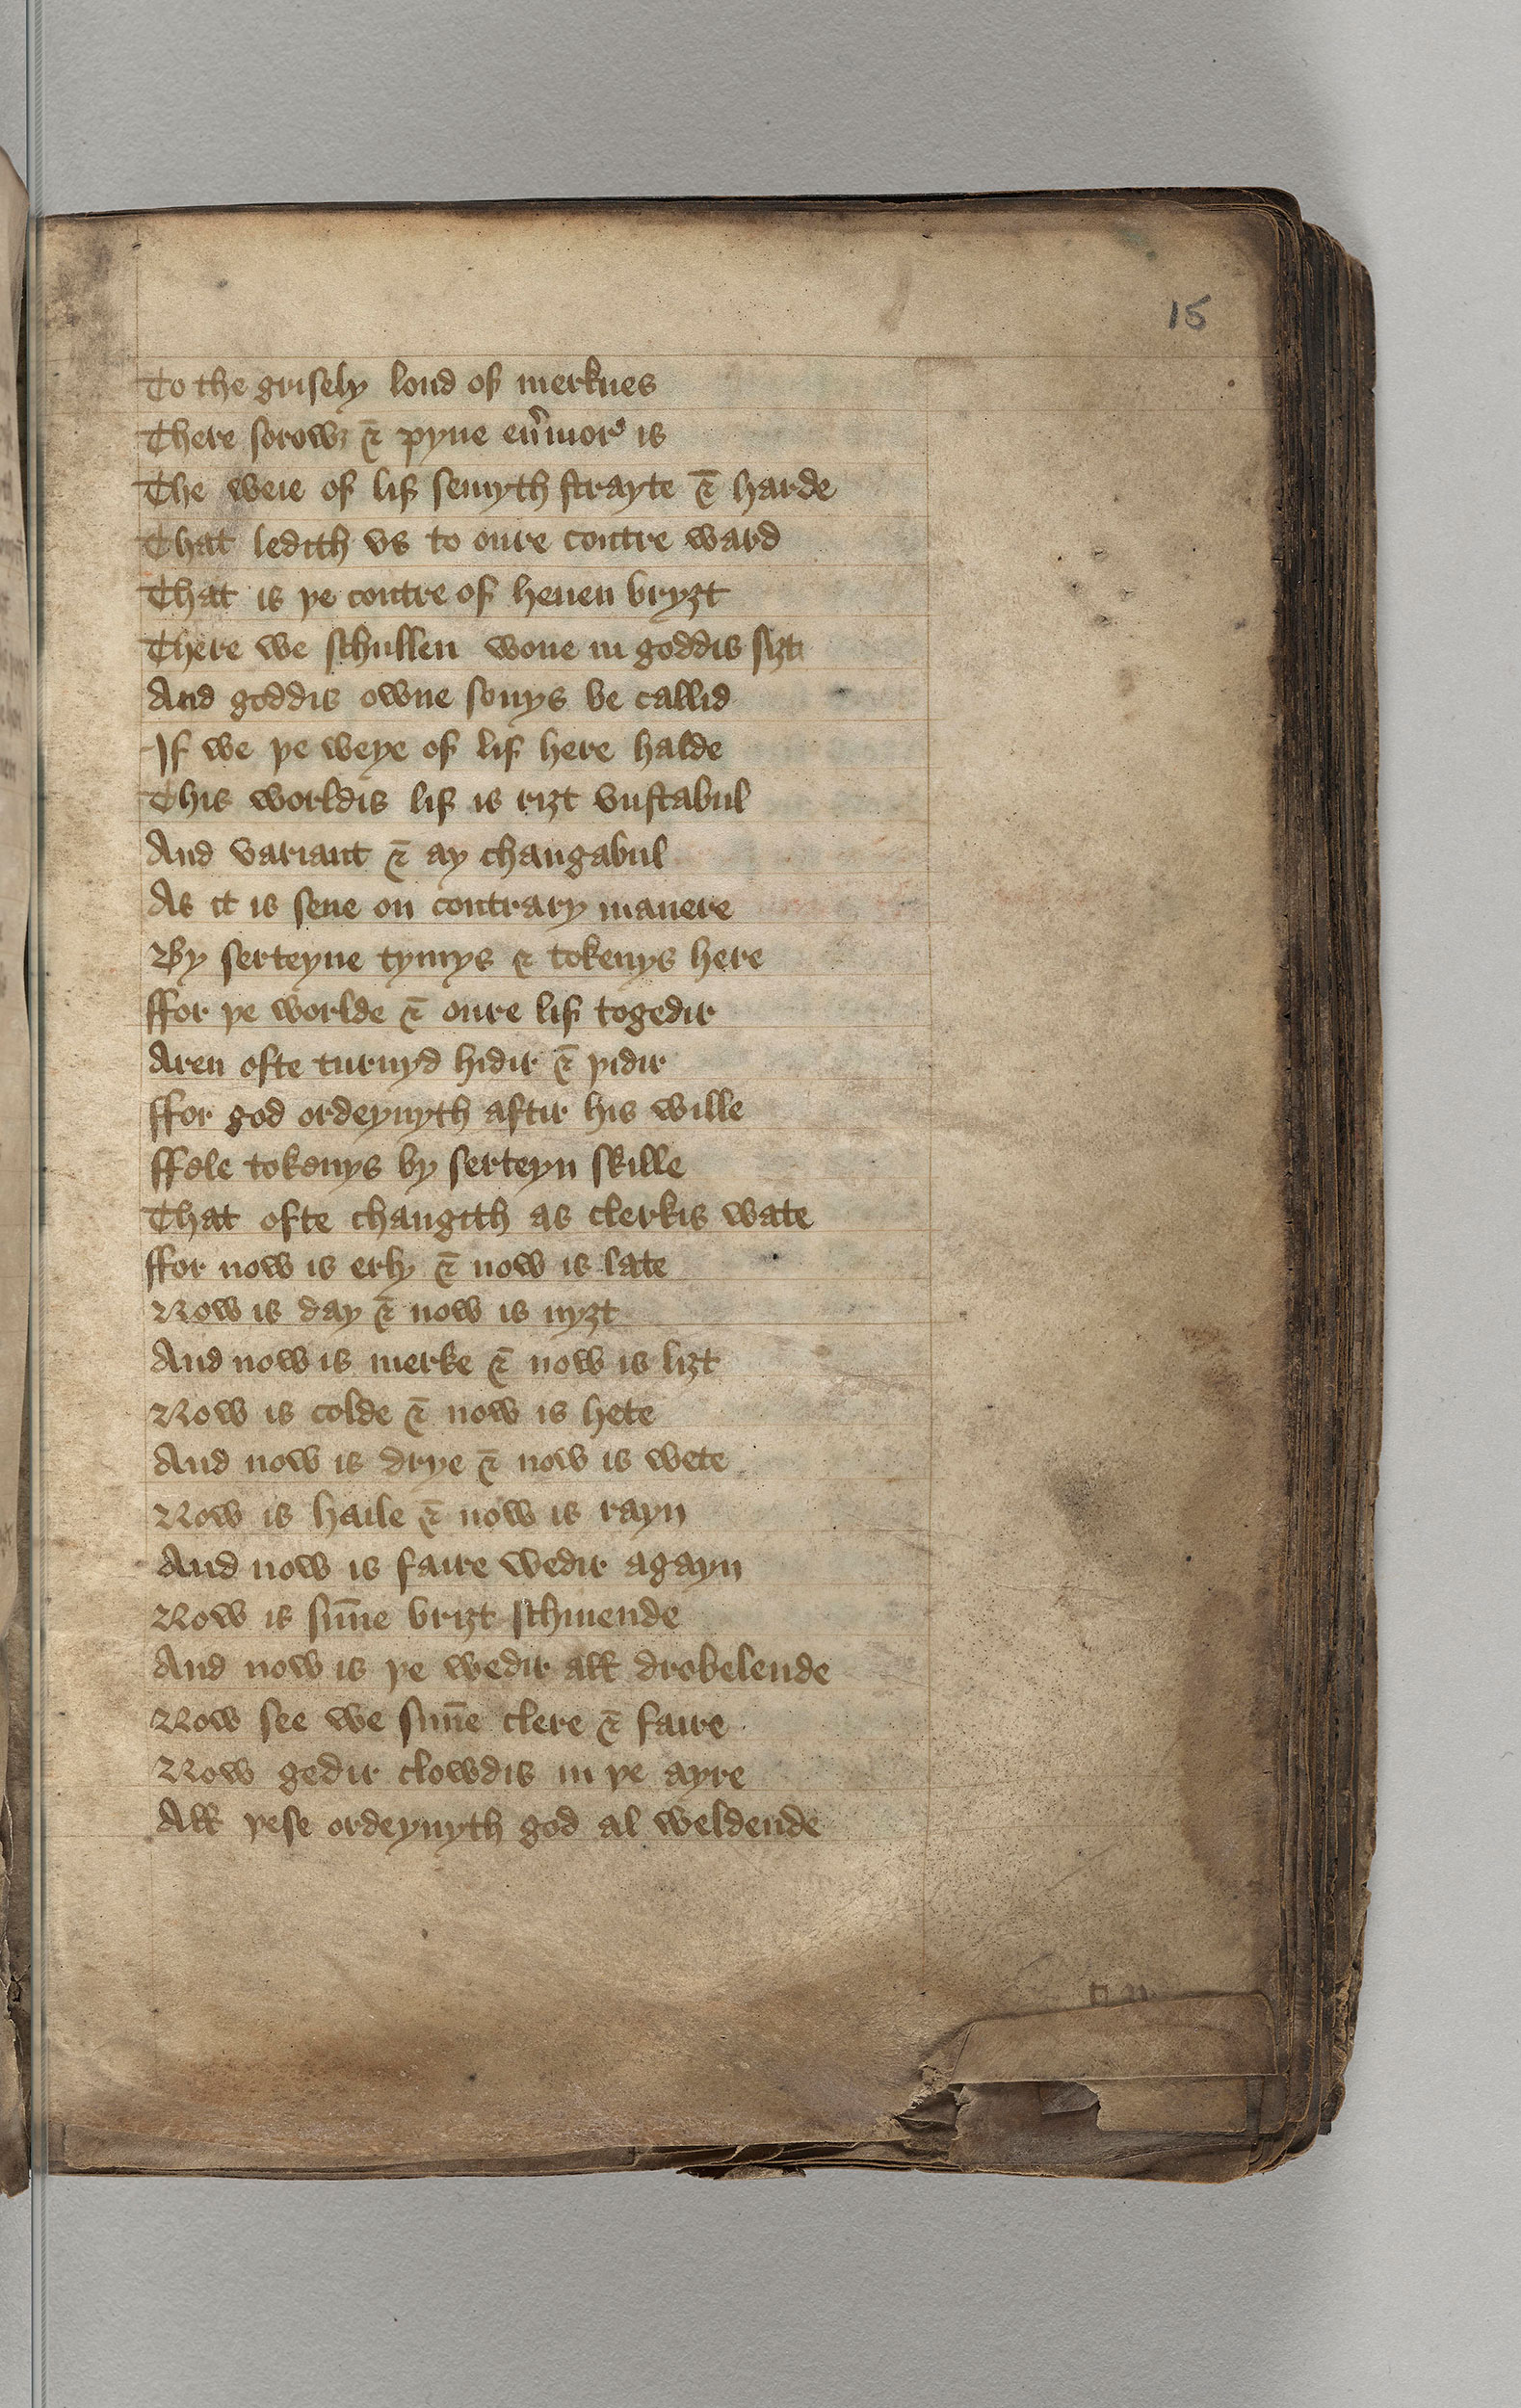 15
To the grisely lond of merknes
There sorowȝ & pyne eu̾mor is
The weie of lif semyth strayte & harde
That ledith vs to oure contre ward
That is þe contre of heuen bryȝt
There we schullen wone in goddis siȝt
And goddis owne sonys be callid
If we þe weye of lif here halde
This worldis lif is riȝt vnstabul
And variant & ay changabul
As it is sene on contrary manere
By serteyne tymys & tokenys here
ffor þe worlde & oure lif togedir
Aren ofte turnyd hidir & þidir
ffor god ordeynyth aftir his wille
ffele tokenys by serteyn skille
That ofte changith as clerkis wate
ffor now is erly & now is late
Now is day & now is nyȝt
And now is merke & now is liȝt
Now is colde & now is hete
And now is drye & now is wete
Now is haile & now is rayn
And now is faire wedir agayn
Now is sūne briȝt schinende
And now is þe wedir all drobelende
Now see we sūne clere & faire
Now gedir clowdis in þe ayre
All þese ordeynyth god al weldende